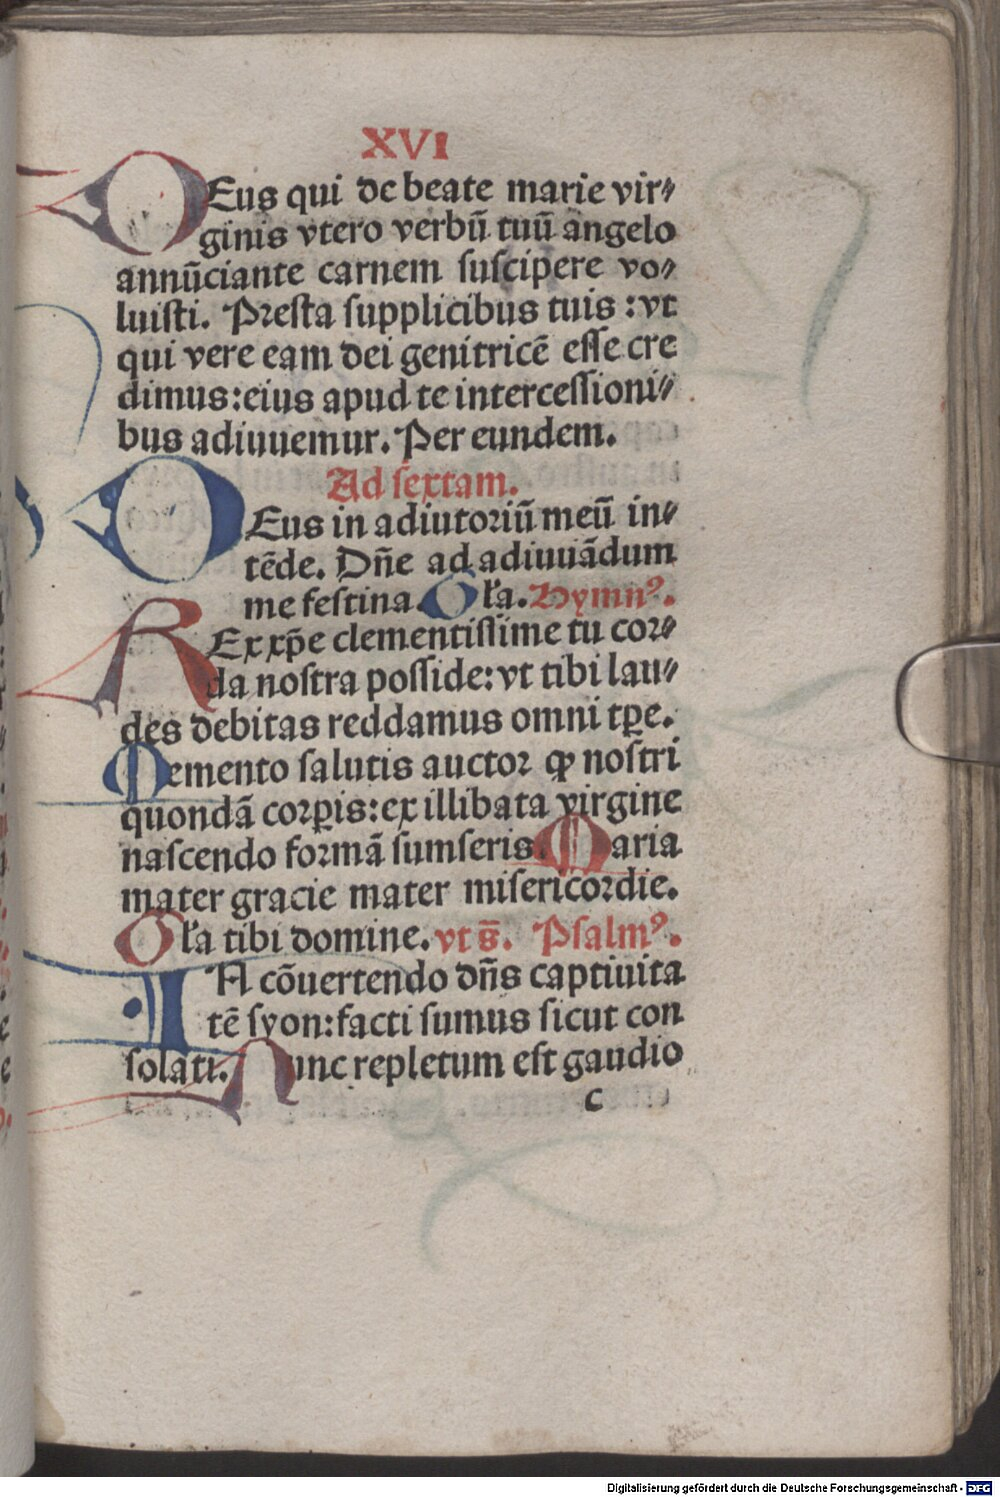 XVI
DEus qui de beate marie vir⸗
ginis vtero verbū tuū angelo
annūciante carnem ſuſcipere vo⸗
luiſti. Preſta ſupplicibus tuis : vt
qui vere eam dei genitricē eſſe cre
dimus:eius apud te interceſſioni⸗
bus adiuuemur. Per eundem.
Ad ſextam.
DEus in adiutoriū meū in⸗
tēde. Dn̄e ad adiuuādum
me feſtina. Gƚa. Hymnꝰ.
REx xp̄e clementiſſime tu cor⸗
da noſtra poſſide: vt tibi lau⸗
des debitas reddamus omni tꝑe.
Memento ſalutis auctor ꝙ noſtri
quondā corꝑis: ex illibata virgine
naſcendo formā ſumſeris. Maria
mater gracie mater miſericordie.
Gƚa tibi domine. vt s̄. Pſalmꝰ.
IN cōuertendo dn̄s captiuita
tē ſyon: facti ſumus ſicut con
ſolati. Nunc repletum eſt gaudio
c
Digitalisierung gefördert durch die Deutsche Forschungsgemeinschaft - DFG